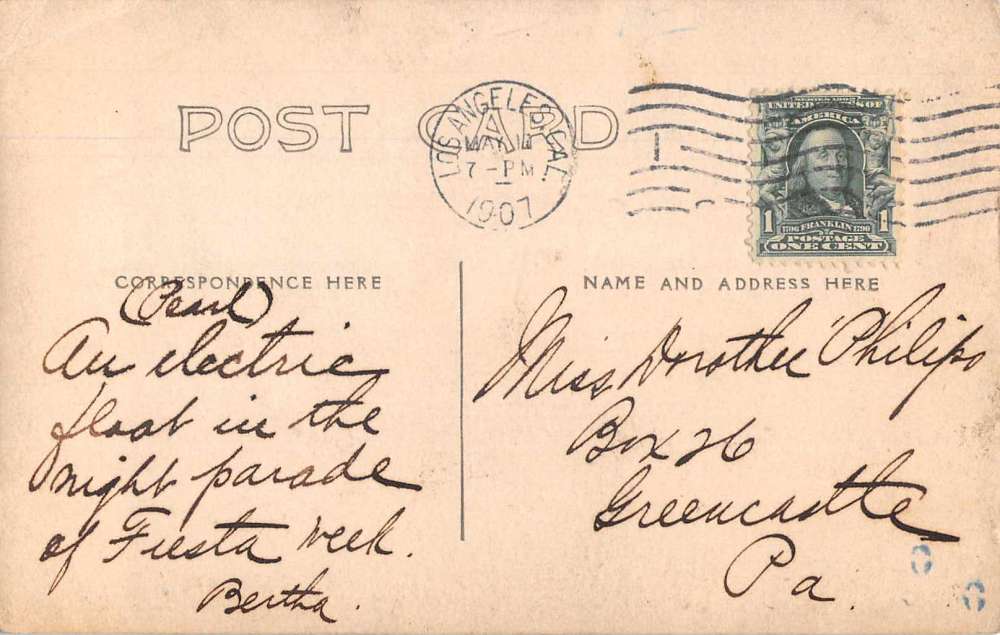 POST CARD
LOS ANGELES, CAL.
MAY
7 - PM
1907
SERIES 1902
UNITED STATES OF
AMERICA
1706 FRANKLIN 1790
1 1
POSTAGE
ONE CENT
CORRESPONDENCE HERE
NAME AND ADDRESS HERE
(Pearl)
An electric
float in the
night parade
of Fiesta week.
Bertha.
Miss Dorothee Philips
Box 26
Greencastle
Pa.